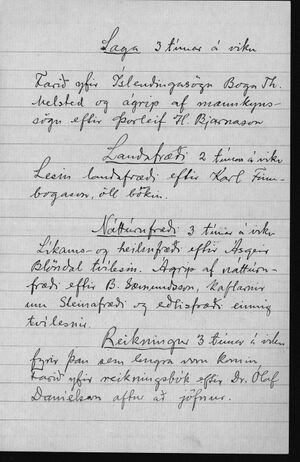 Saga 3 tímar á viku
Farið yfir Íslendingasögu Boga Th.
Melsted og ágrip af mannkyns-
sögu eftir Þorleif H. Bjarnason
Landafræði 2 tímar á viku
Lesin landafræði eftir Karl Finn-
bogason, öll bókin.
Náttúrufræði 3 tímar á viku
Líkams- og heilsufræði eftir Ásgeir
Blöndal tvílesin. Ágrip af náttúru-
fræði eftir B. Sæmundsson, kaflarnir
um Steinafræði og eðlisfræði einnig
tvílesnir.
Reikningur 3 tímar á viku
fyrir þau sem lengra voru komin
Farið yfir reikningsbók eftir Dr. Ólaf
Daníelsson aftur að jöfnur.